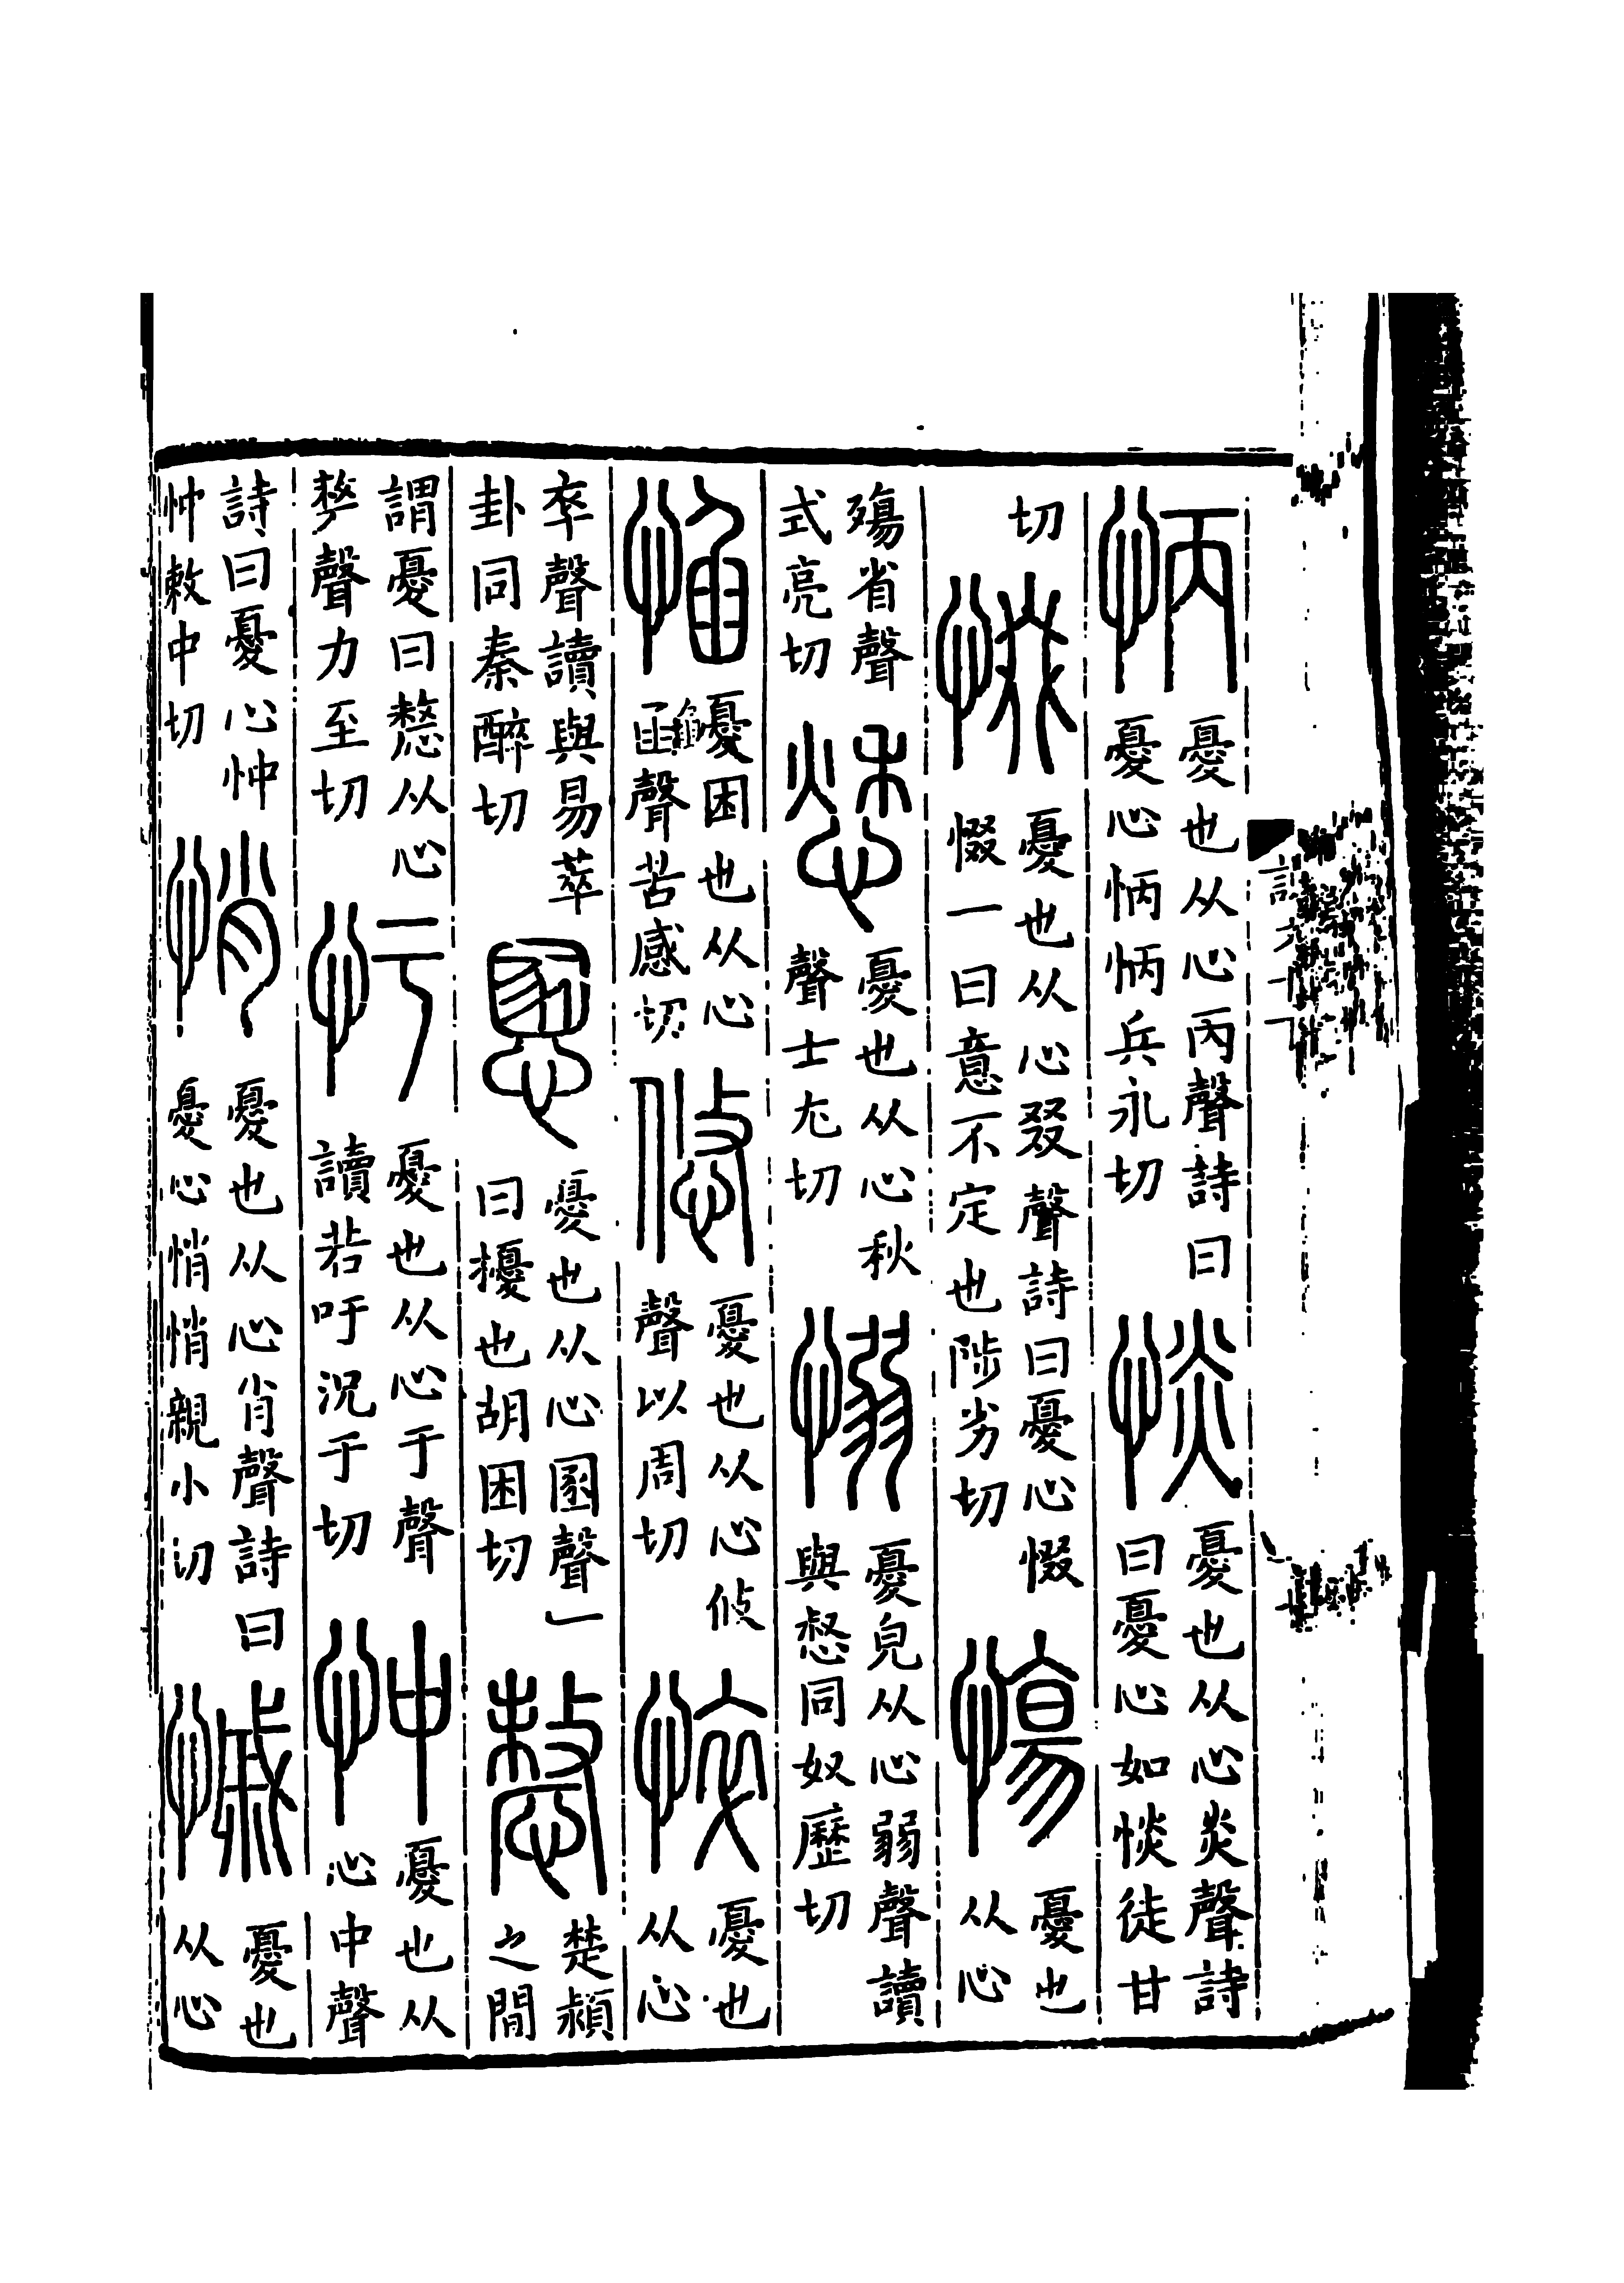 說文十下
怲
憂也从心丙聲詩曰
憂心怲怲兵永切
惔
憂也从心炎聲詩
曰憂心如惔徒甘
切
惙
憂也从心叕聲詩曰憂心惙
惙一曰意不定也陟劣切
慯
憂也
从心
殤省聲
式亮切
愁
憂也从心秋
聲士尤切
愵
憂皃从心弱聲讀
與惄同奴歷切
惂
憂困也从心
臽函聲苦感切
悠
憂也从心攸
聲以周切
悴
憂也
从心
卒聲讀與易萃
卦同秦醉切
慁
憂也从心圂聲一
曰擾也胡困切
𢟤
楚潁
之間
謂憂曰𢟤从心
𠩺聲力至切
忓
憂也从心于聲
讀若吁況于切
忡
憂也从
心中聲
詩曰憂心忡
忡敕中切
悄
憂也从心肖聲詩曰
憂心悄悄親小切
慽
憂也
从心